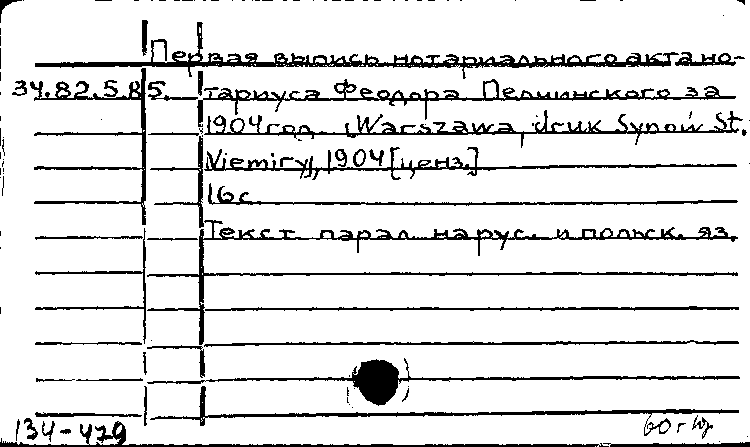 Первая выпись нотариального акта но-
34.82.5.85. тариуса Феодора Пелчинского за
1904 год. (Warszawa, druk Synów St.
Niemiry), 1904 [ценз.]
16 с.
Текст парал. на рус. и польск. яз.
134-479